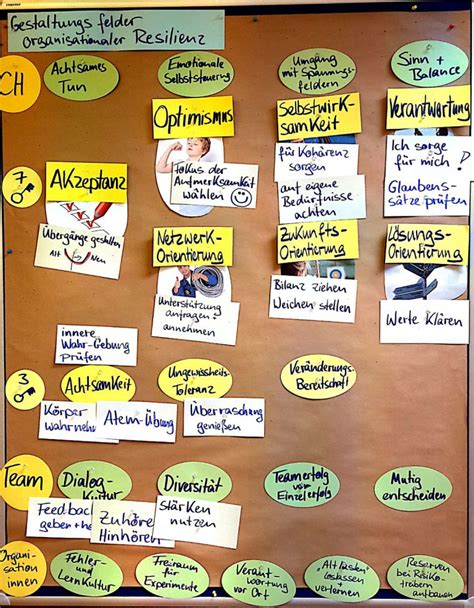 Gestaltungsfelder
organisationaler Resilienz
CH
Achtsames
Tun
Emotionale
Selbststeuerung
Umgang
mit Spannungs-
feldern
Sinn +
Balance
Optimismus
Fokus der
Aufmerksamkeit
wählen
Selbstwirk-
samkeit
für Kohärenz
sorgen
auf eigene
Bedürfnisse
achten
Verantwortung
Ich sorge
für mich!
Glaubens-
sätze prüfen
7
Akzeptanz
Übergänge gestalten
Alt
Neu
Netzwerk-
Orientierung
Unterstützung
anfragen +
annehmen
Zukunfts-
Orientierung
Bilanz ziehen
Weichen stellen
Lösungs-
Orientierung
Werte Klären
innere
Wahr-Gebung
Prüfen
3
Achtsamkeit
Körper
wahrnehm
Atem-Übung
Ungewissheits-
Toleranz
Überraschung
genießen
Veränderungs-
Bereitschaft
Team
Dialog-
Kultur
Feedback
geben + ne
Zuhören
Hinhören
Diversität
Stärken
nutzen
Teamerfolg
vor
Einzelerfolg
Mutig
entscheiden
Organi-
sation
innen
Fehler-
und
Lernkultur
Freiraum
für
Experimente
Verant-
wortung
vor Ort
"Altlasten"
loslassen
+
verlernen
Reserven
bei Risiko-
trabern
aufbauen